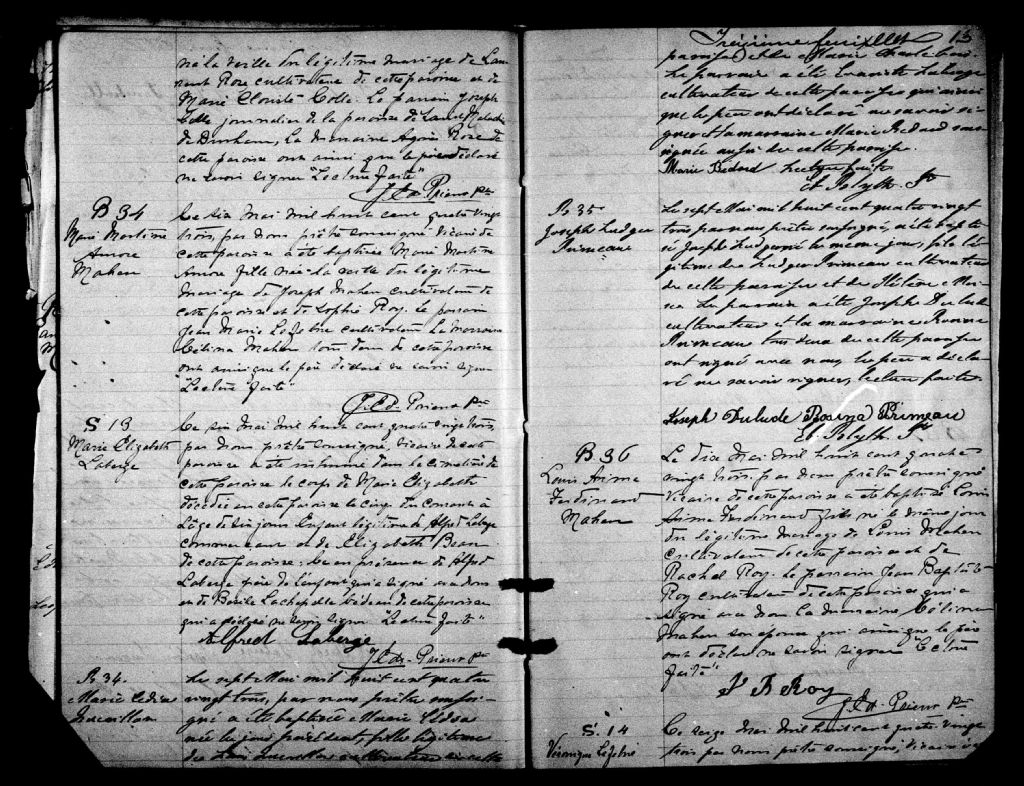 né la veille du légitime mariage de Lau
rent Roze cultivateur de cette paroisse et de
Marie Colle. Le parrain Joseph
Colle journalier de la paroisse de
de Durham, La marraine Roze de
cette paroisse ont ainsi que le père déclaré
ne savoir signer "Lecture faite"
J.Ed. Prieur Ptr
B 34
Marie Martine
Aurore
Mahen
Le six Mai Mil huit cent quatre vingt
trois, par nous prêtre soussigné vicaire de
cette paroisse a été baptisée Marie Martine
Aurore fille née la veille du légitime
mariage de Joseph Mahen cultivateur de
cette paroisse et de Sophie Roy. Le parrain
Jean Marie Lefebvre cultivateur La marraine
Célina Mahen tous deux de cette paroisse
ont ainsi que le père déclaré ne savoir signer
"Lecture faite"
J.Ed. Prieur Ptr
S 13
Marie Elizabeth
Laberge
Le six Mai Mil huit cent quatre vingt trois,
par nous prêtre soussigné, vicaire de cette
paroisse a été inhumé dans le cimetière de
cette paroisse le corps de Marie Elizabeth
décédée en cette paroisse le cinq du courant à
l'âge de dix jours Enfant légitime de Alfred Laberge
commerçant et de Elizabeth Bean
de cette paroisse: en présence de Alfred
Laberge père de l'enfant qui a signé avec nous
et de Basile Lachapelle bédeau de cette paroisse
qui a déclaré ne savoir signer "Lecture faite"
Alfred Laberge
J.Ed. Prieur Ptr
B. 34.
Marie
Le sept Mai mil huit cent quatre
vingt trois, par nous prêtre soussi-
gné a été baptisée Marie
née le jour précédent, fille légitime
de Louis cultivateur de cette
Treizième feuillet 13
paroisse et de Marie
Le parrain a été Evariste Laberge
cultivateur de cette paroisse qui ainsi
que le père ont déclaré ne savoir si-
gner et la marraine Marie Bédard sous-
signée aussi de cette paroisse.
Marie Bedard Lecture faite
Et. Blyth. Ptr
B. 35
Joseph Ludger
Primeau
Le sept Mai mil huit cent quatre vingt
trois par nous prêtre soussigné, a été bapti-
sé Joseph Ludger né le même jour, fils lé-
gitime de Ludger Primeau cultivateur
de cette paroisse et de Hélène
Le parrain a été Joseph Dulude
cultivateur et la marraine Rosina
Primeau tous deux de cette paroisse
ont signé avec nous, le père a décla-
ré ne savoir signer, lecture faite.
Joseph Dulude Rosina Primeau
Et. Blyth. Ptr
B 36
Louis Anime
Ferdinand
Mahen
Le dix Mai Mil huit cent quatre
vingt trois, par nous prêtre soussigné
vicaire de cette paroisse a été baptisé Louis
Anime Ferdinand fils né le même jour
du légitime mariage de Louis Mahen
Cultivateur de cette paroisse et de
Rachel Roy. Le parrain Jean Baptiste
Roy cultivateur de cette paroisse qui a
signé avec nous La marraine Célina
Mahen son épouse qui ainsi que le père
ont déclaré ne savoir signer "Lecture
faite"
J B Roy
J.Ed. Prieur Ptr
S. 14
Véronique Lefebvre
Le seize Mai Mil huit cent quatre vingt
trois par nous prêtre soussigné, vicaire de